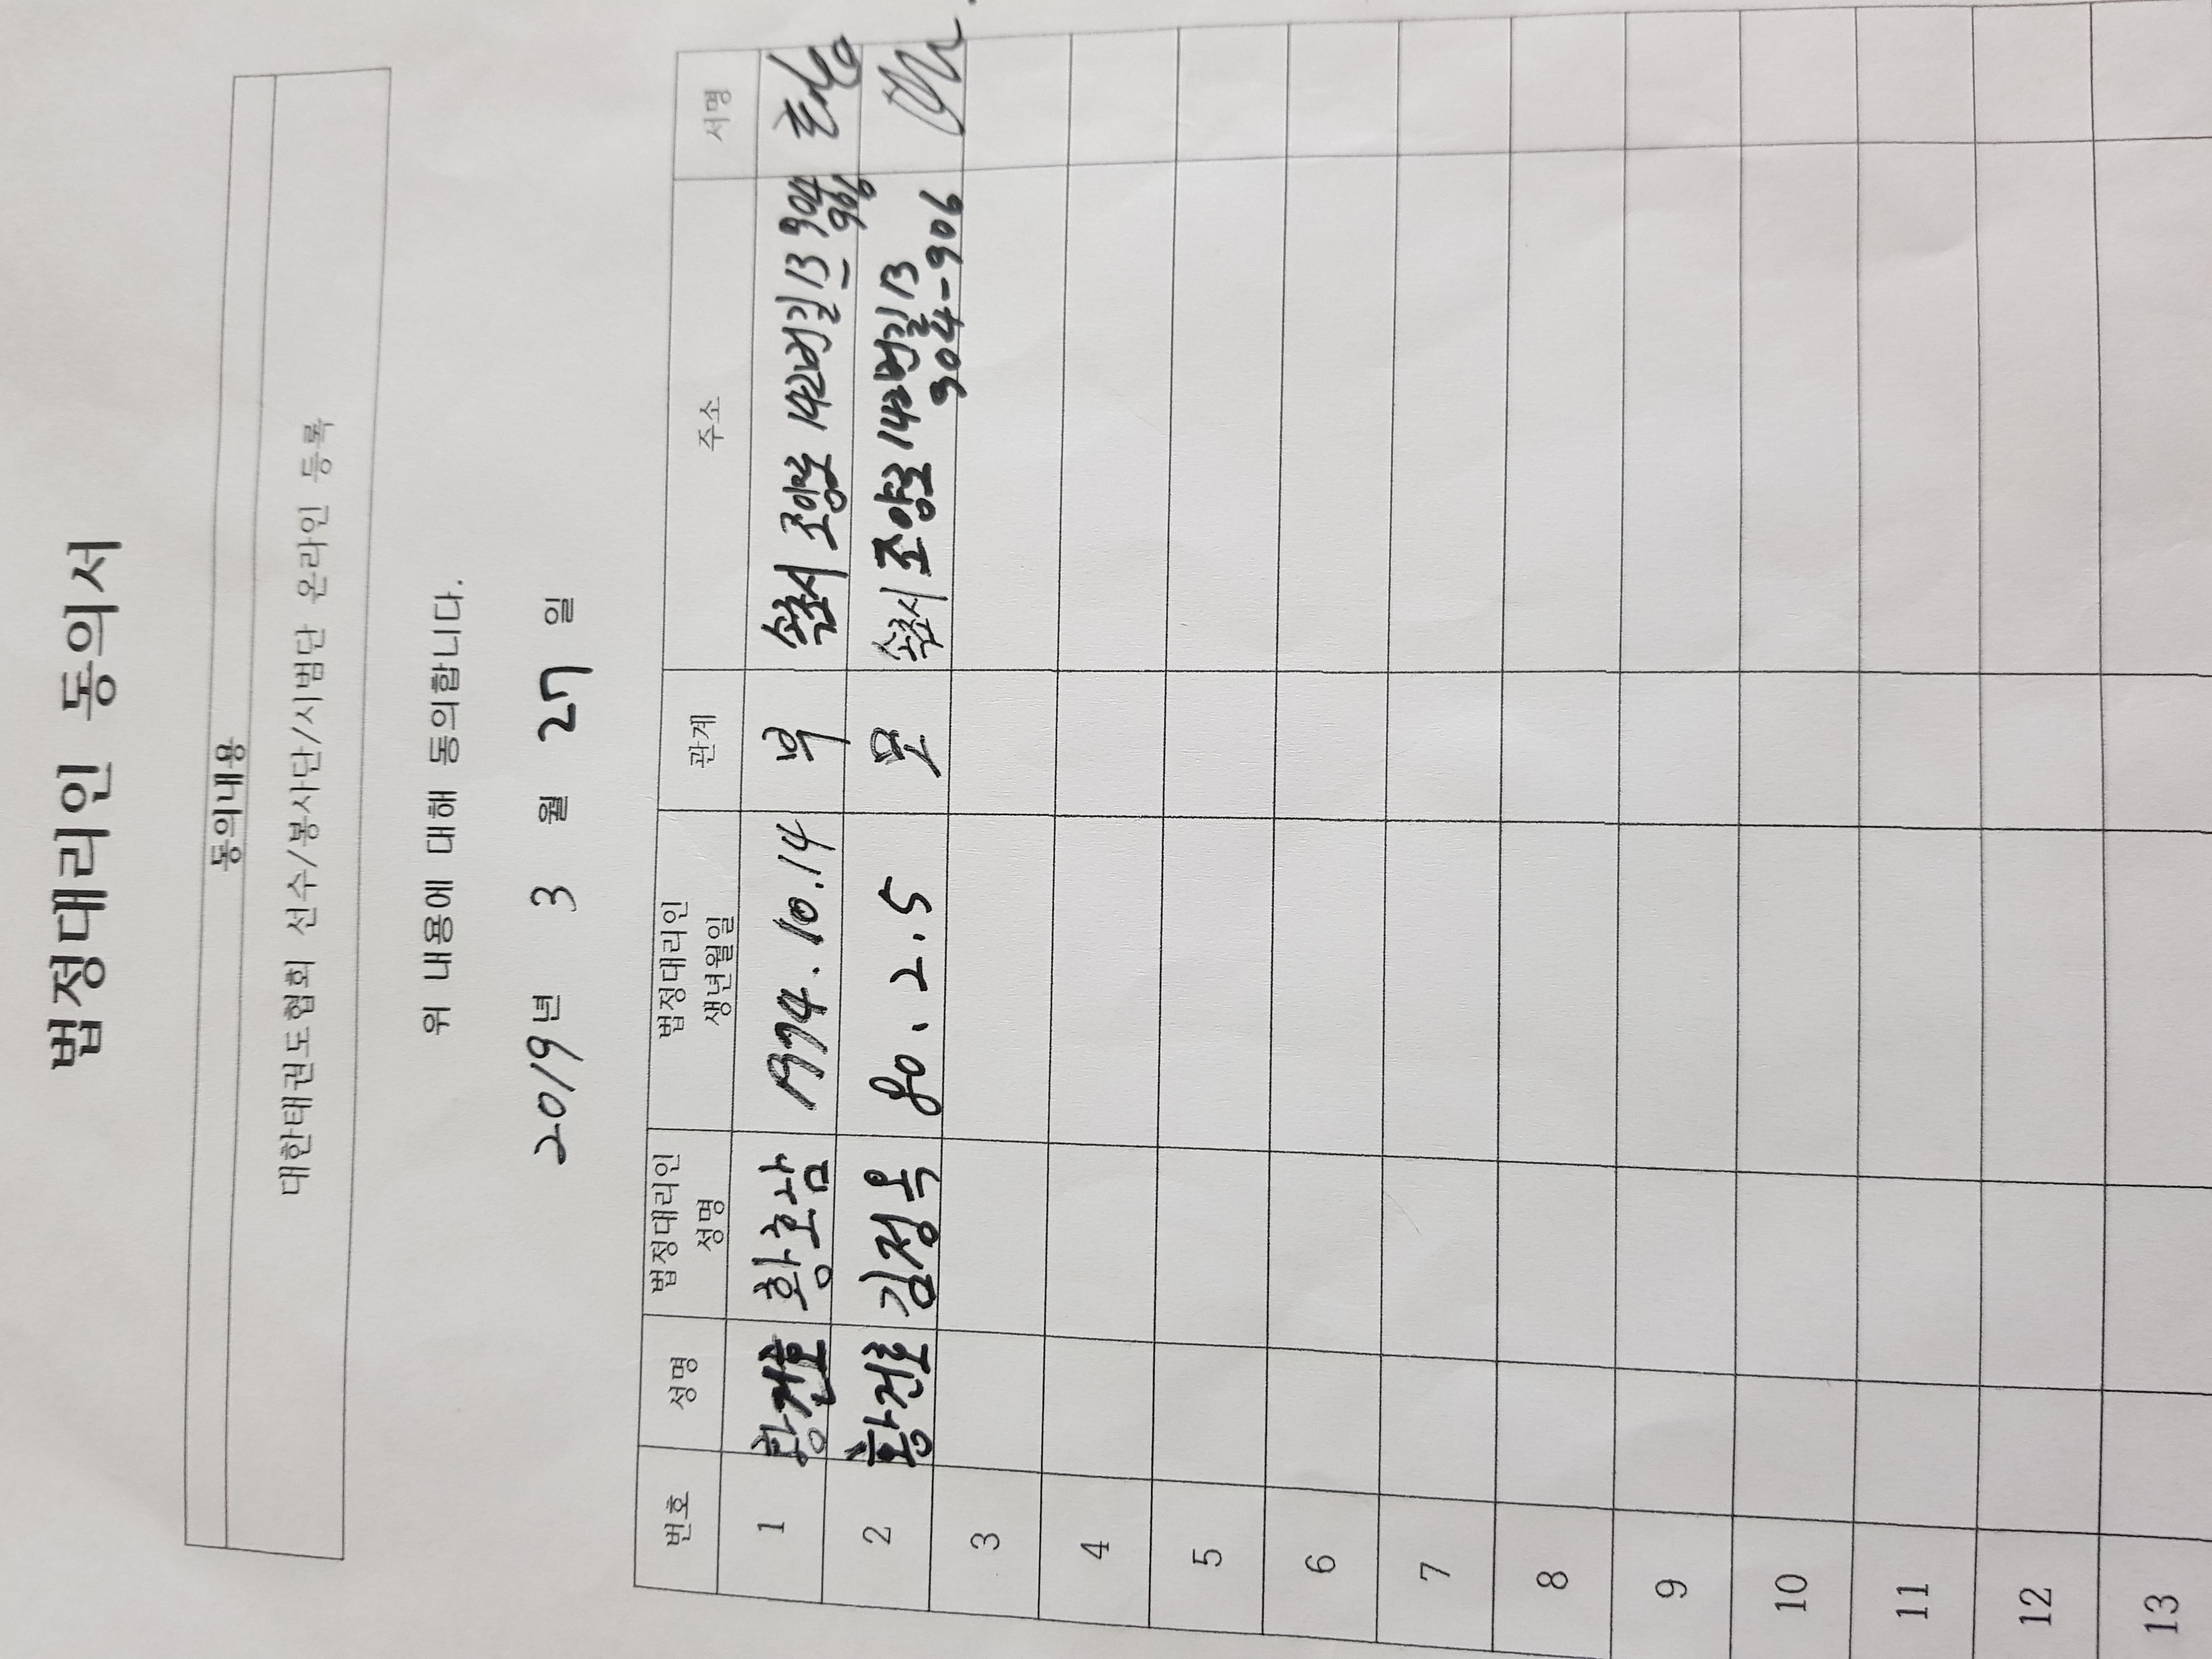 법정대리인 동의서
동의내용
대한태권도협회 선수/봉사단/시범단 온라인 등록
위 내용에 대해 동의합니다.
2019년 3 월 27 일
번호 성명 법정대리인 성명 법정대리인 생년월일 관계 주소 서명
1 황건호 황호삼 1974.10.14 부 속초시 조양로 142번길 13 904-906
2 황건호 김정옥 80.2.5 모 속초시 조양로 142번길 13 904-906
3
4
5
6
7
8
9
10
11
12
13